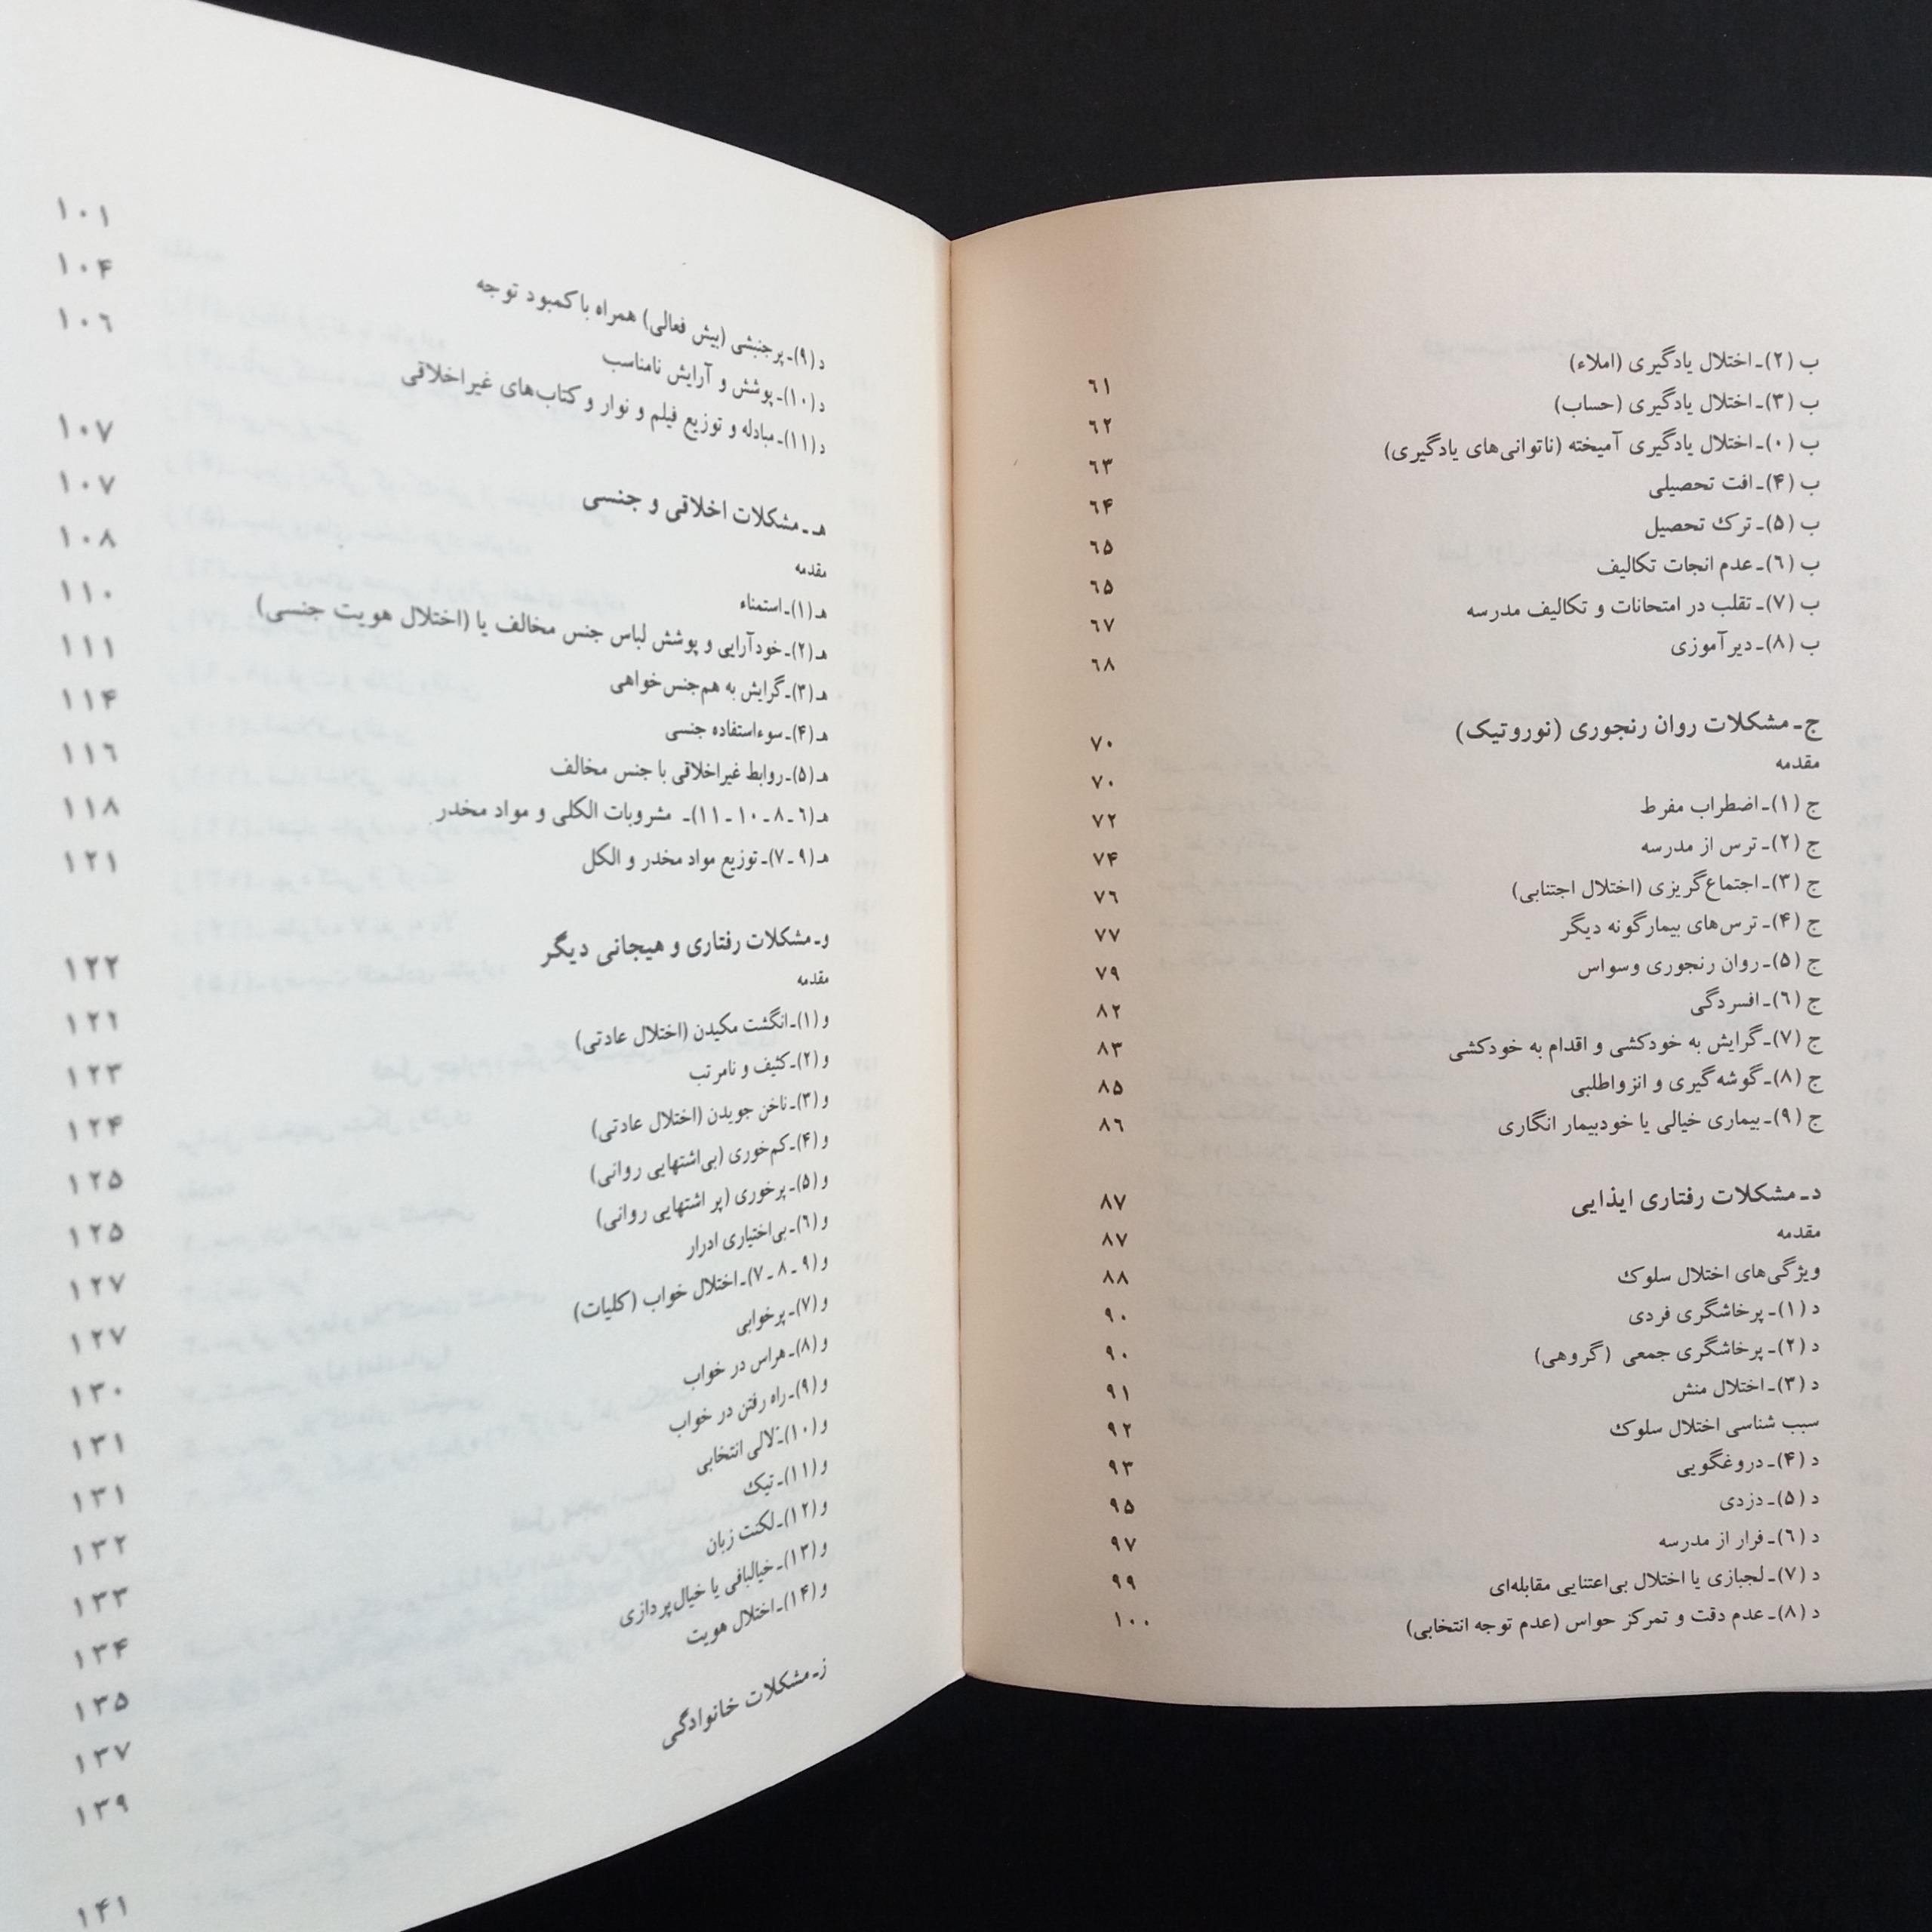 ب (۲)ـ اختلال یادگیری (املاء) ۶۱
ب (۳)ـ اختلال یادگیری (حساب) ۶۲
ب (۰)ـ اختلال یادگیری آمیخته (ناتوانی‌های یادگیری) ۶۳
ب (۴)ـ افت تحصیلی ۶۴
ب (۵)ـ ترک تحصیل ۶۵
ب (۶)ـ عدم انجات تکالیف ۶۵
ب (۷)ـ تقلب در امتحانات و تکالیف مدرسه ۶۷
ب (۸)ـ دیرآموزی ۶۸
ج ـ مشکلات روان رنجوری (نوروتیک) ۷۰
مقدمه ۷۰
ج (۱)ـ اضطراب مفرط ۷۲
ج (۲)ـ ترس از مدرسه ۷۴
ج (۳)ـ اجتماع‌گریزی (اختلال اجتنابی) ۷۶
ج (۴)ـ ترس‌های بیمارگونه دیگر ۷۷
ج (۵)ـ روان رنجوری وسواس ۷۹
ج (۶)ـ افسردگی ۸۲
ج (۷)ـ گرایش به خودکشی و اقدام به خودکشی ۸۳
ج (۸)ـ گوشه‌گیری و انزواطلبی ۸۵
ج (۹)ـ بیماری خیالی یا خودبیمار انگاری ۸۶
د ـ مشکلات رفتاری ایذایی ۸۷
مقدمه ۸۷
ویژگی‌های اختلال سلوک ۸۸
د (۱)ـ پرخاشگری فردی ۹۰
د (۲)ـ پرخاشگری جمعی (گروهی) ۹۰
د (۳)ـ اختلال منش ۹۱
سبب شناسی اختلال سلوک ۹۲
د (۴)ـ دروغگویی ۹۳
د (۵)ـ دزدی ۹۵
د (۶)ـ فرار از مدرسه ۹۷
د (۷)ـ لجبازی یا اختلال بی‌اعتنایی مقابله‌ای ۹۹
د (۸)ـ عدم دقت و تمرکز حواس (عدم توجه انتخابی) ۱۰۰
د (۹)ـ پرجنبشی (بیش فعالی) همراه با کمبود توجه ۱۰۱
د (۱۰)ـ پوشش و آرایش نامناسب ۱۰۴
د (۱۱)ـ مبادله و توزیع فیلم و نوار و کتاب‌های غیراخلاقی ۱۰۶
هـ ـ مشکلات اخلاقی و جنسی ۱۰۷
مقدمه ۱۰۷
هـ (۱)ـ استمناء ۱۰۸
هـ (۲)ـ خودآرایی و پوشش لباس جنس مخالف یا (اختلال هویت جنسی) ۱۱۰
هـ (۳)ـ گرایش به هم‌جنس‌خواهی ۱۱۱
هـ (۴)ـ سوءاستفاده جنسی ۱۱۴
هـ (۵)ـ روابط غیراخلاقی با جنس مخالف ۱۱۶
هـ (۶ـ ۸ـ ۱۰ـ ۱۱)ـ مشروبات الکلی و مواد مخدر ۱۱۸
هـ (۹ـ ۷)ـ توزیع مواد مخدر و الکل ۱۲۱
و ـ مشکلات رفتاری و هیجانی دیگر ۱۲۲
مقدمه ۱۲۲
و (۱)ـ انگشت مکیدن (اختلال عادتی) ۱۲۳
و (۲)ـ کثیف و نامرتب ۱۲۴
و (۳)ـ ناخن جویدن (اختلال عادتی) ۱۲۵
و (۴)ـ کم‌خوری (بی‌اشتهایی روانی) ۱۲۵
و (۵)ـ پرخوری (پر اشتهایی روانی) ۱۲۷
و (۶)ـ بی‌اختیاری ادرار ۱۲۷
و (۹ـ ۸ـ ۷)ـ اختلال خواب (کلیات) ۱۳۰
و (۷)ـ پرخوابی ۱۳۱
و (۸)ـ هراس در خواب ۱۳۱
و (۹)ـ راه رفتن در خواب ۱۳۲
و (۱۰)ـ لالی انتخابی ۱۳۳
و (۱۱)ـ تیک ۱۳۴
و (۱۲)ـ لکنت زبان ۱۳۵
و (۱۳)ـ خیالبافی یا خیال‌پردازی ۱۳۷
و (۱۴)ـ اختلال هویت ۱۳۹
ز ـ مشکلات خانوادگی ۱۴۱